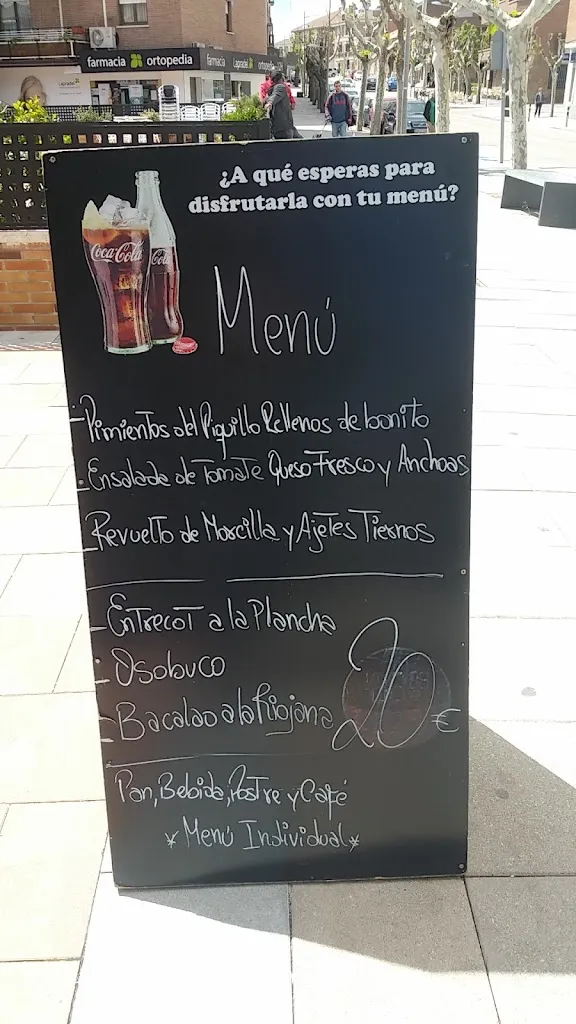 farmacia ortopedia
farmacia
¿A qué esperas para
disfrutarla con tu menú?
Coca-Cola
Menú
- Pimientos del Piquillo Rellenos de bonito
- Ensalada de Tomate Queso Fresco y Anchoas
- Revuelto de Morcilla y Ajetes Tiernos
- Entrecot a la Plancha
- Osobuco
- Bacalao a la Riojana
20 €
Pan, Bebida, Postre y Café
* Menú Individual *